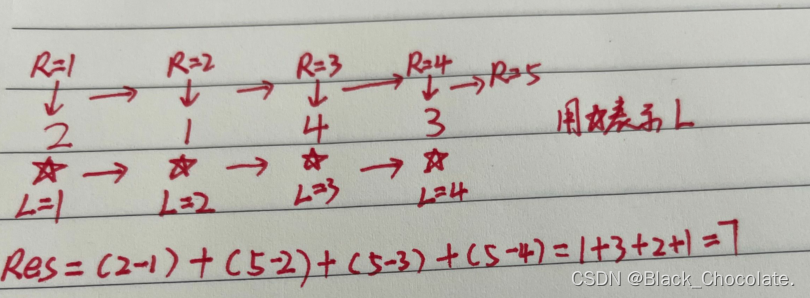 R=1 → R=2 → R=3 → R=4 → R=5
↓ ↓ ↓ ↓
2 1 4 3 用☆表示L
☆ → ☆ → ☆ → ☆
L=1 L=2 L=3 L=4
Res = (2-1) + (5-2) + (5-3) + (5-4) = 1+3+2+1 = 7
CSDN @Black_Chocolate.